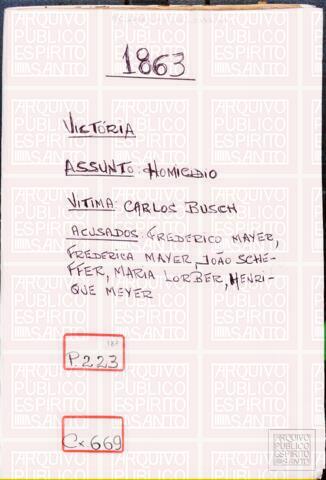 1863
VICTÓRIA
ASSUNTO: HOMICIDIO
VITIMA: CARLOS BUSCH
ACUSADOS: FREDERICO MAYER,
FREDERICA MAYER, JOÃO SCHE-
FFER, MARIA LORBER, HENRI-
QUE MEYER
P.223
Cx 669
ARQUIVO
PÚBLICO
ESPÍRITO
SANTO